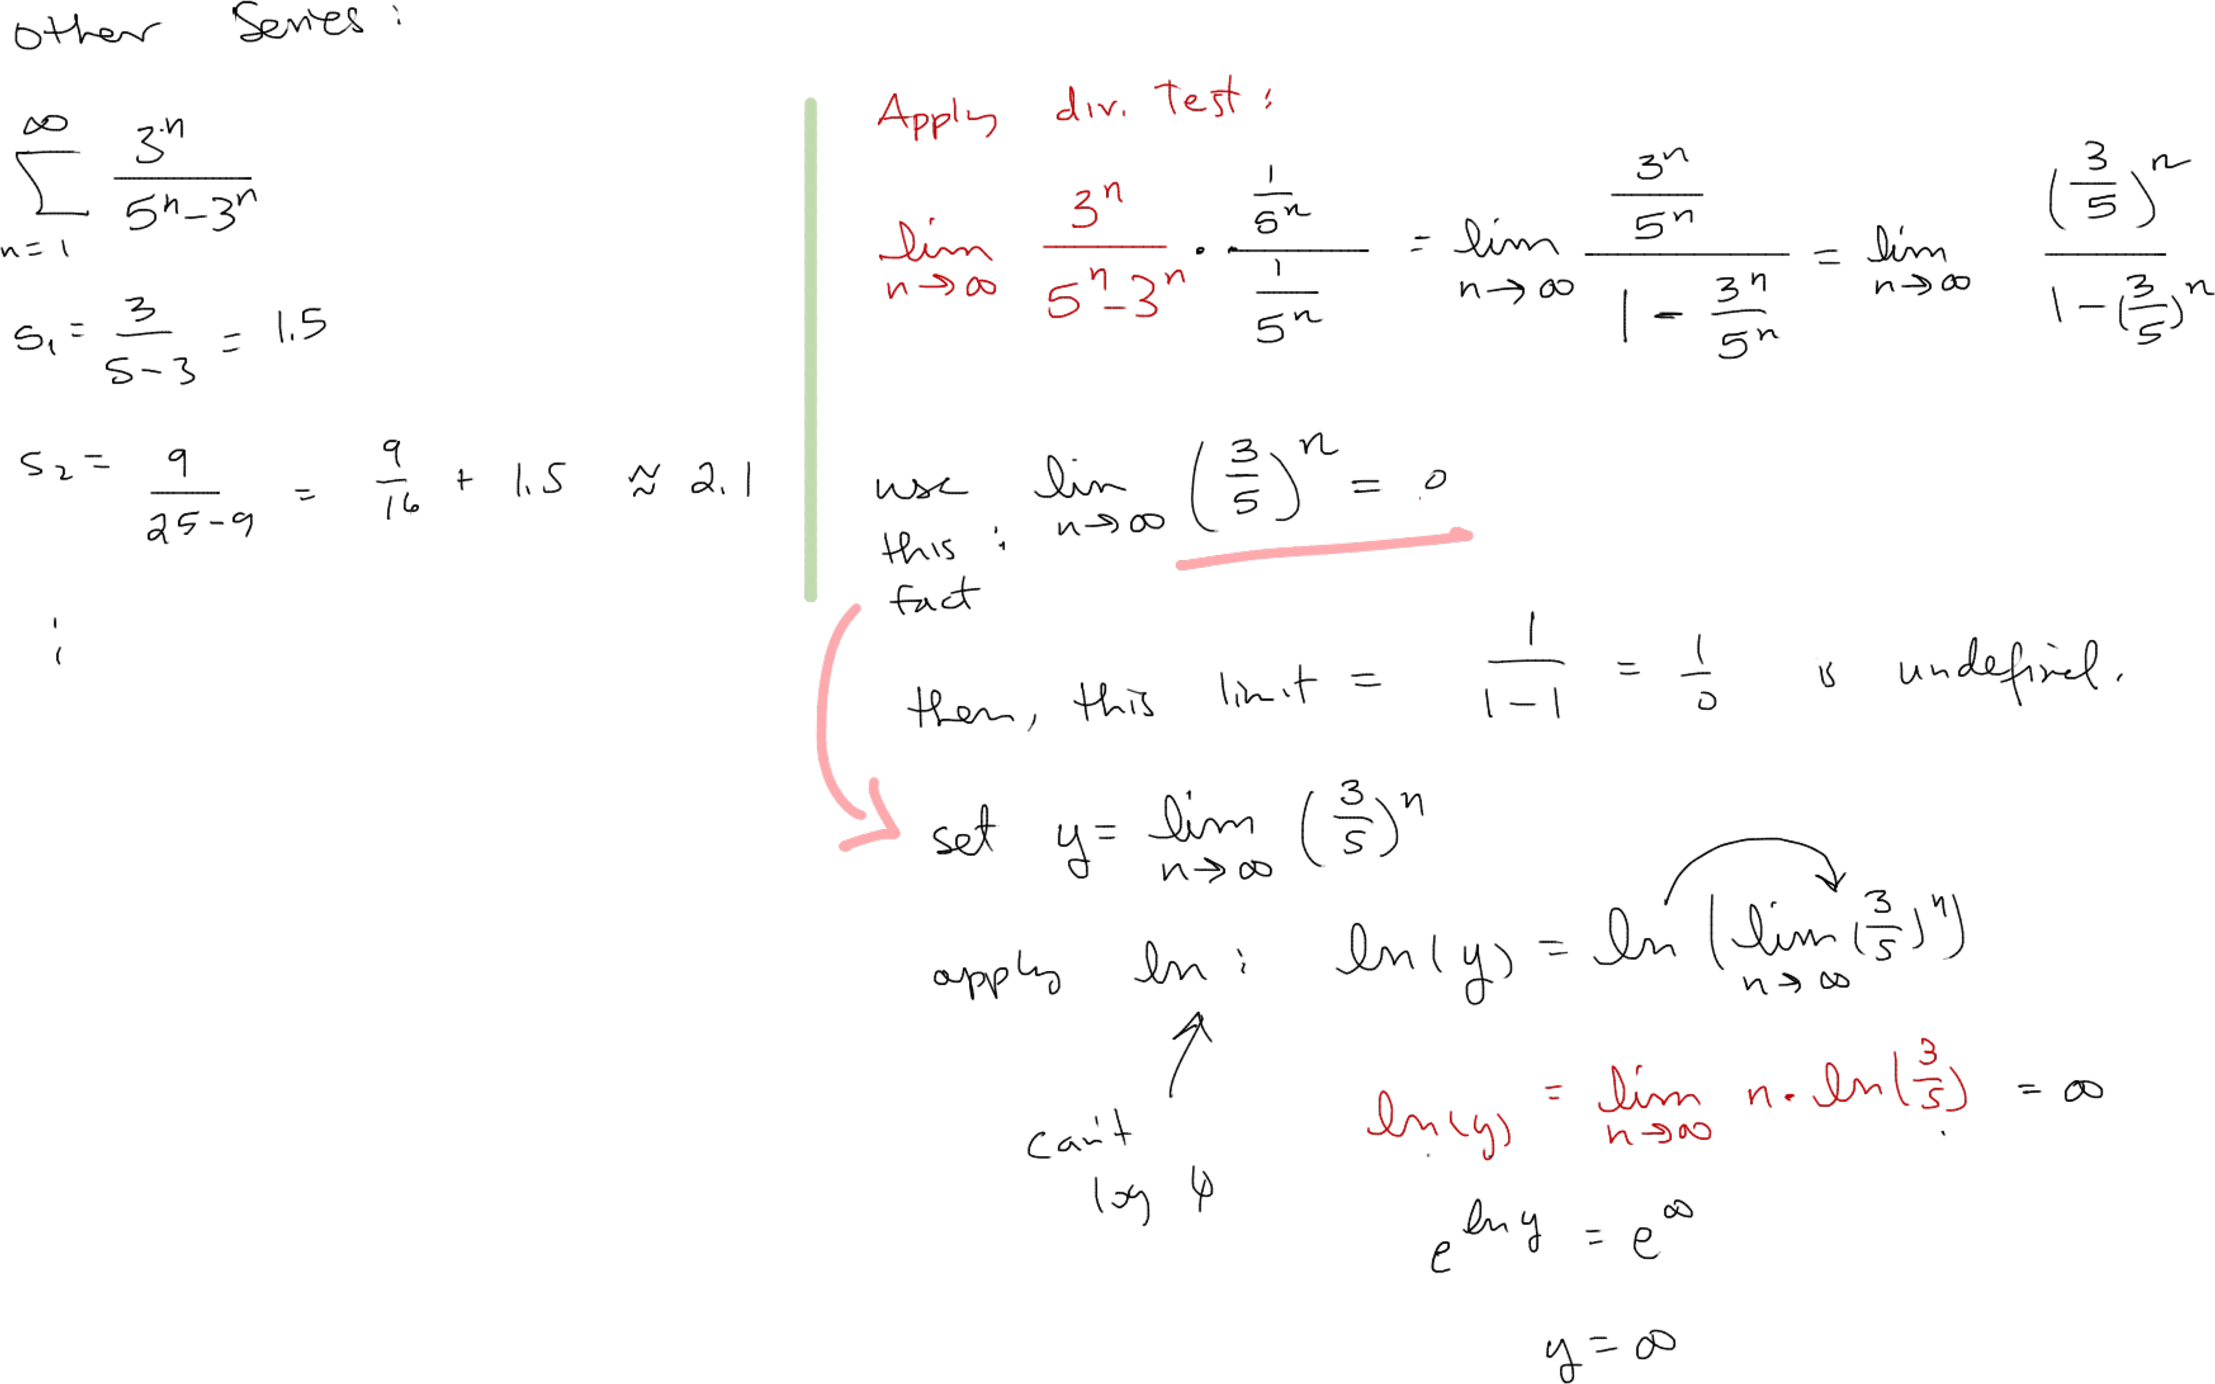 Other Series:
∑_{n=1}^{∞} 3^n / (5^n - 3^n)
s_1 = 3 / (5-3) = 1.5
s_2 = 9 / (25-9) = 9/16 + 1.5 ≈ 2.1
⋮
Apply div. Test:
lim_{n→∞} 3^n / (5^n - 3^n) · (1/5^n) / (1/5^n) = lim_{n→∞} (3^n/5^n) / (1 - 3^n/5^n) = lim_{n→∞} (3/5)^n / (1 - (3/5)^n)
use this fact: lim_{n→∞} (3/5)^n = 0
then, this limit = 1 / (1-1) = 1/0 is undefined.
set y = lim_{n→∞} (3/5)^n
apply ln: ln(y) = ln (lim_{n→∞} (3/5)^n)
can't
log
ln(y) = lim_{n→∞} n·ln(3/5) = ∞
e^{ln y} = e^∞
y = ∞